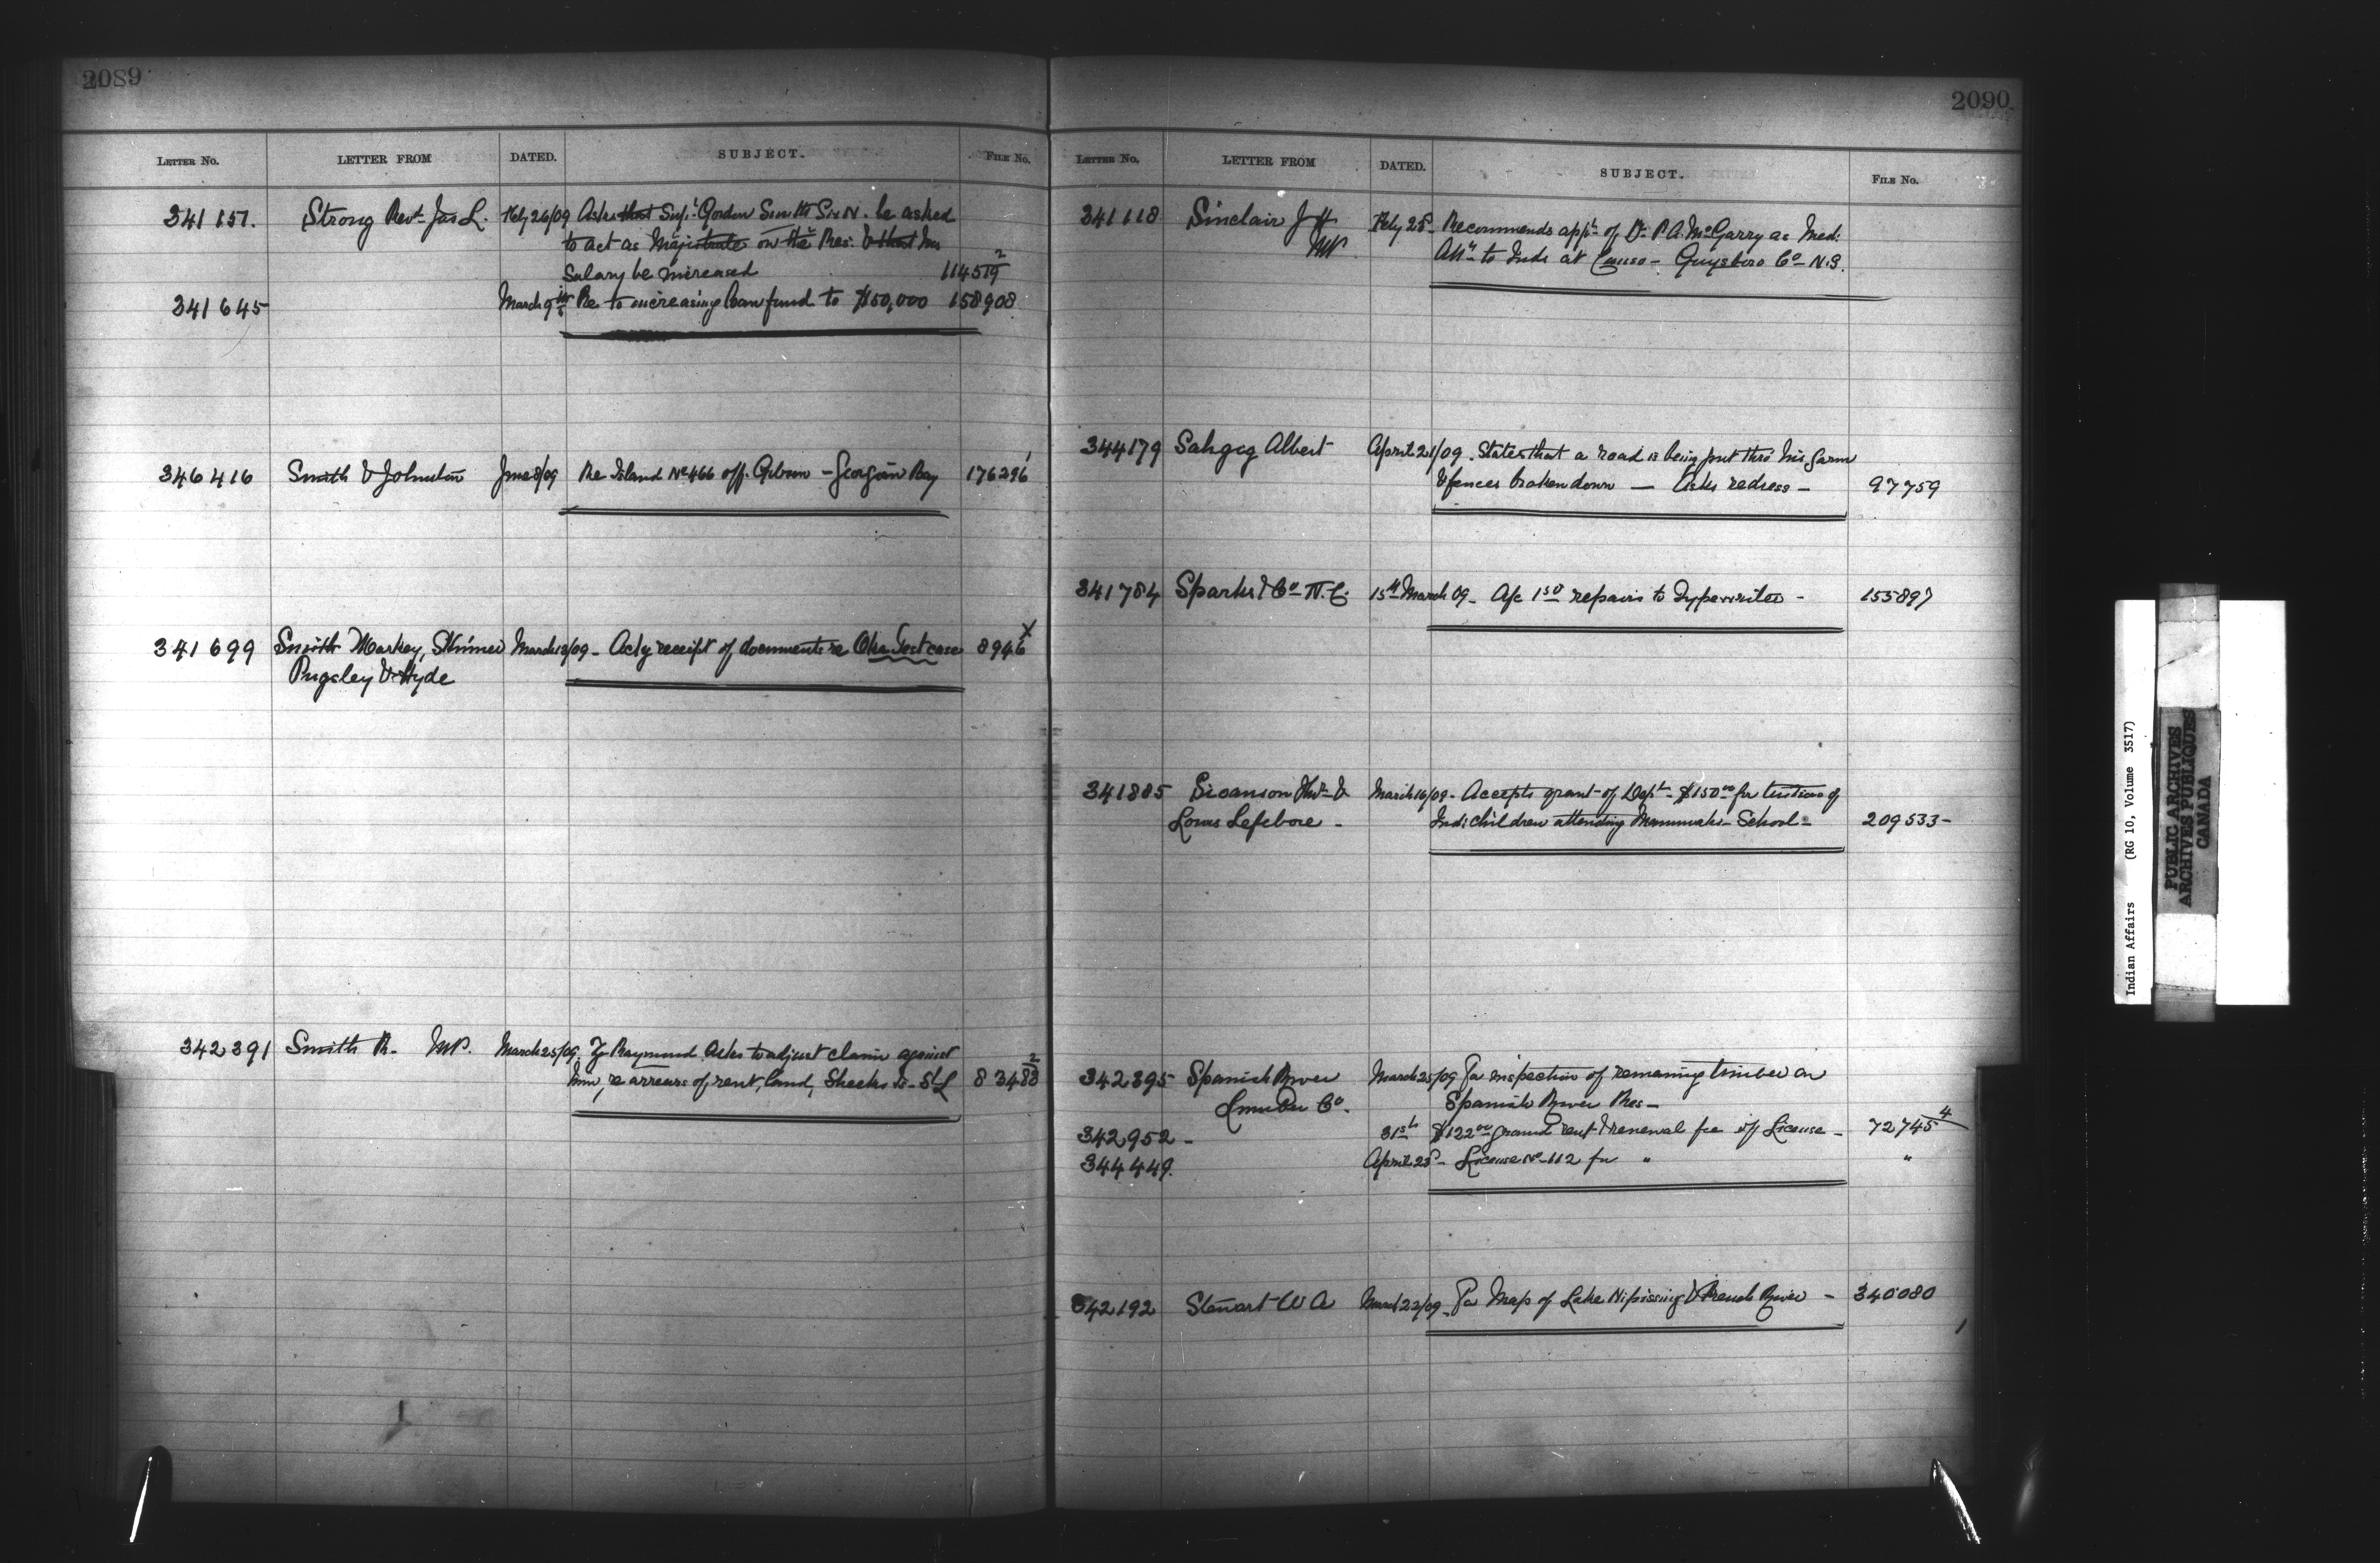 2089
LETTER NO. LETTER FROM DATED. SUBJECT. FILE NO.
341157. Strong Revd. Jas L. Feby 26/09 Asks that Supt. Gordon Smith Six N. be asked
to act as Magistrate on the Res. & that his
Salary be increased 114519 2
341645 March 9th Re to increasing loan fund to $50,000 158908
346416 Smith & Johnston June 8/09 Re Island No 466 off. Gibson - Georgian Bay 176296 1
341699 Smith Markey, Skinner March 13/09 - Ackg receipt of documents re Oka Test case 8946 X
Pugsley & Hyde
342391 Smith R. M.P. March 25/09. Raymond Asks to adjust claim against
him, re arrears of rent, land, Sheeks Is - St L 83488 2
2090
LETTER NO. LETTER FROM DATED. SUBJECT. FILE NO.
341118 Sinclair J H Feby 25th Recommends appt. of Dr P.A. McGarry as Med:
MP. Att. to Inds at Canso - Guysboro Co N.S.
344179 Sahgeg Albert April 21/09. States that a road is being put thro his farm
& fences broken down - Asks redress - 97759
341784 Sparks & Co N.C. 15th March 09 - A/c 1.50 repairs to Typewriter - 155897
341885 Swanson & March 16/09 - Accepts grant of Dept. $150.00 for tuition of
Louis Lefebvre - Indi Children attending School - 209533-
342395 Spanish River March 25/09 For inspection of remaining timber on
Lumber Co. Spanish River Res -
342952 - 31st $122.00 ground rent & renewal fee of License - 72745 4
344449. April 23d - License No 112 for " "
342192 Stewart W A March 22/09 - For Map of Lake Nipissing & French River - 340080
Indian Affairs (RG 10, Volume 3517)
PUBLIC ARCHIVES
ARCHIVES PUBLIQUES
CANADA